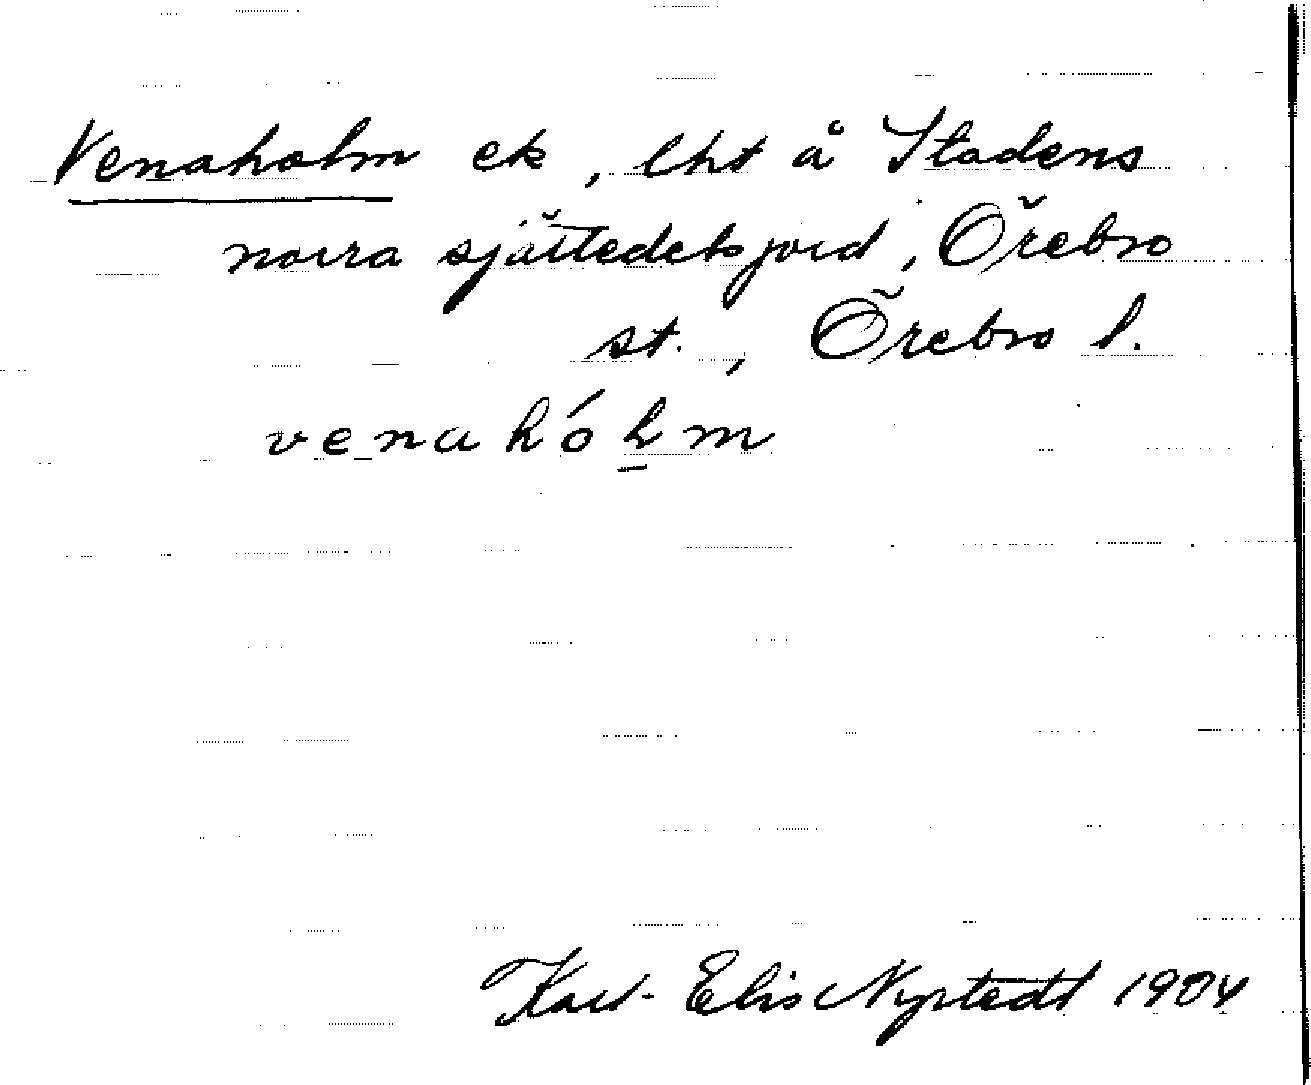 Venaholm ek, lht å Stadens
norra sjättedelsjord, Örebro
st., Örebro l.
venahólm
Karl-Elis Nystedt 1904